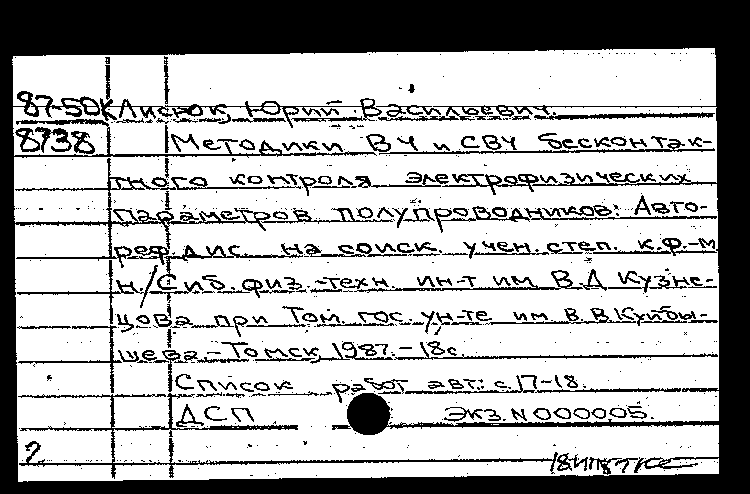 87-50К Лисюк, Юрий Васильевич.
8738 Методики ВЧ и СВЧ бесконтак-
тного контроля электрофизических
параметров полупроводников: Авто-
реф. дис. на соиск. учен. степ. к.ф.-м
н./Сиб. физ.-техн. ин-т им В.Д Кузне-
цова при Том. гос. ун-те им В.В.Куйбы-
шева.-Томск, 1987.-18с.
Список работ авт.: с.17-18.
ДСП экз. N000005.
2